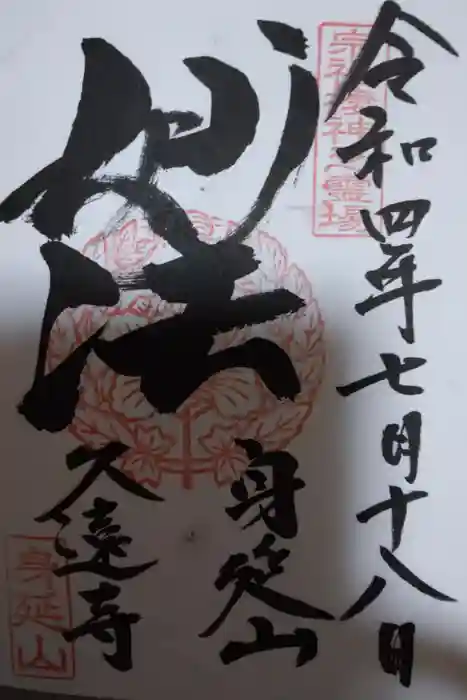 令和四年七月十八日
宗祖棲神之霊場
妙法
身延山
久遠寺
身延山